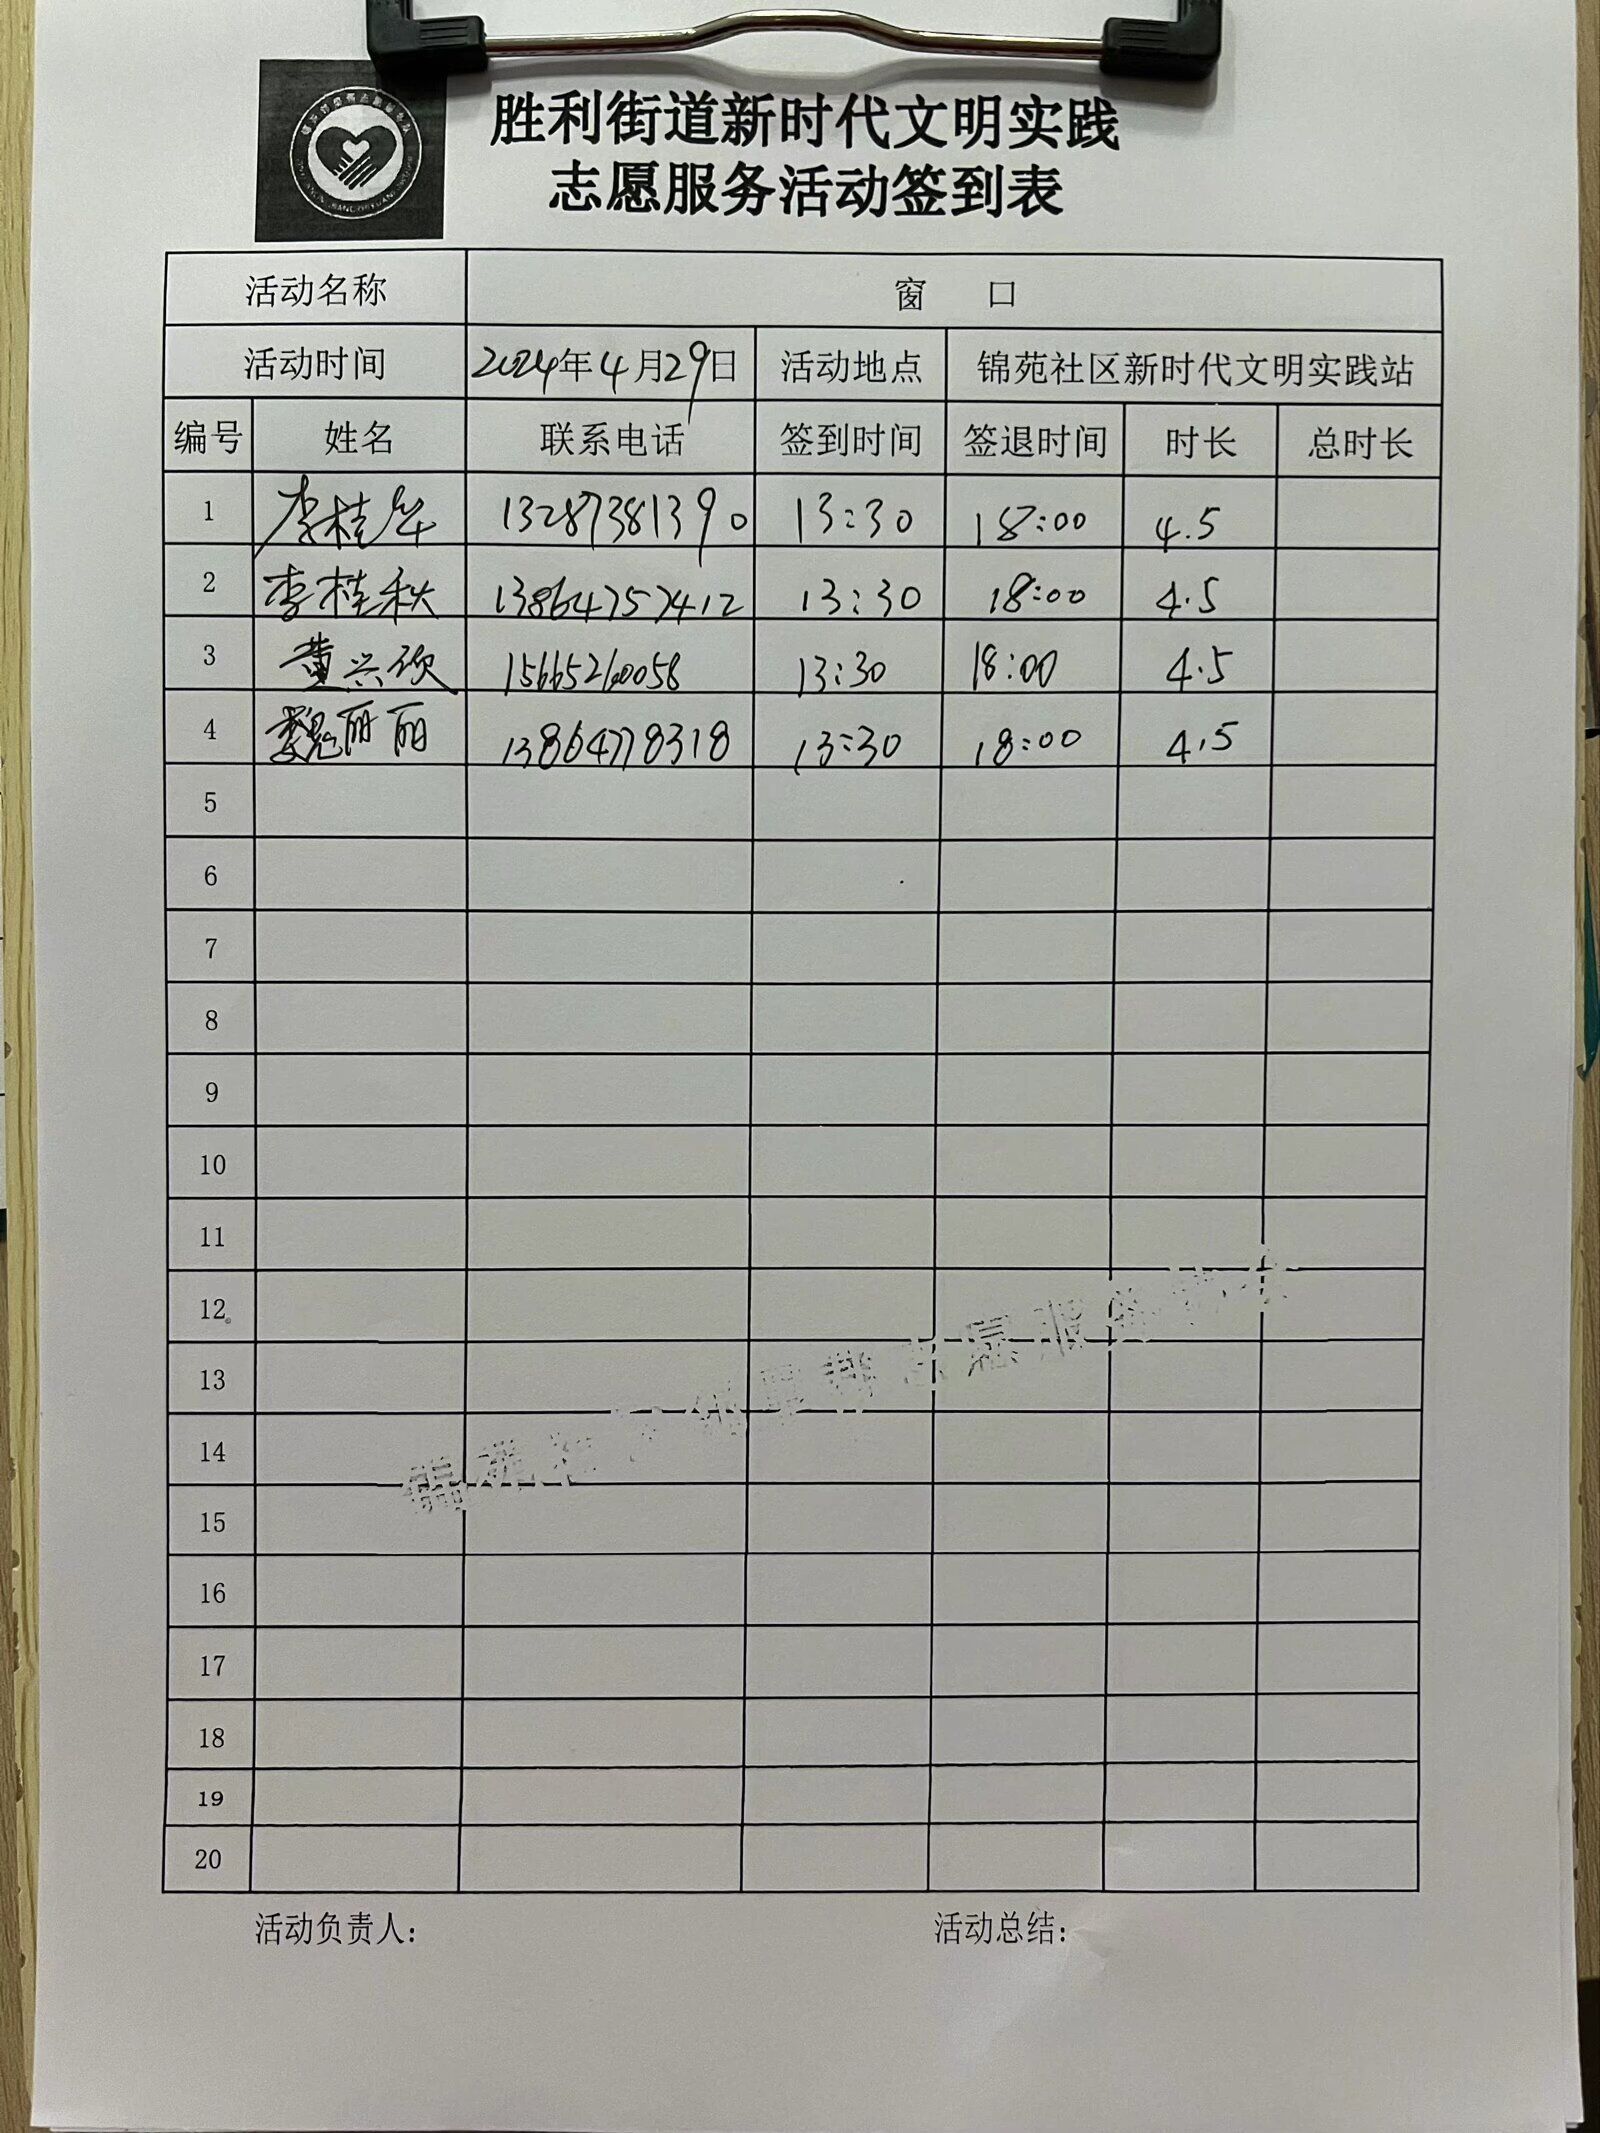 胜利街道新时代文明实践
志愿服务活动签到表
活动名称 窗 口
活动时间 2024年4月29日 活动地点 锦苑社区新时代文明实践站
编号 姓名 联系电话 签到时间 签退时间 时长 总时长
1 李桂华 13287381390 13:30 18:00 4.5
2 李桂秋 13864757412 13:30 18:00 4.5
3 董兴欣 15665260058 13:30 18:00 4.5
4 魏丽丽 13864778318 13:30 18:00 4.5
5
6
7
8
9
10
11
12
13
14
15
16
17
18
19
20
志愿服务
活动负责人: 活动总结: